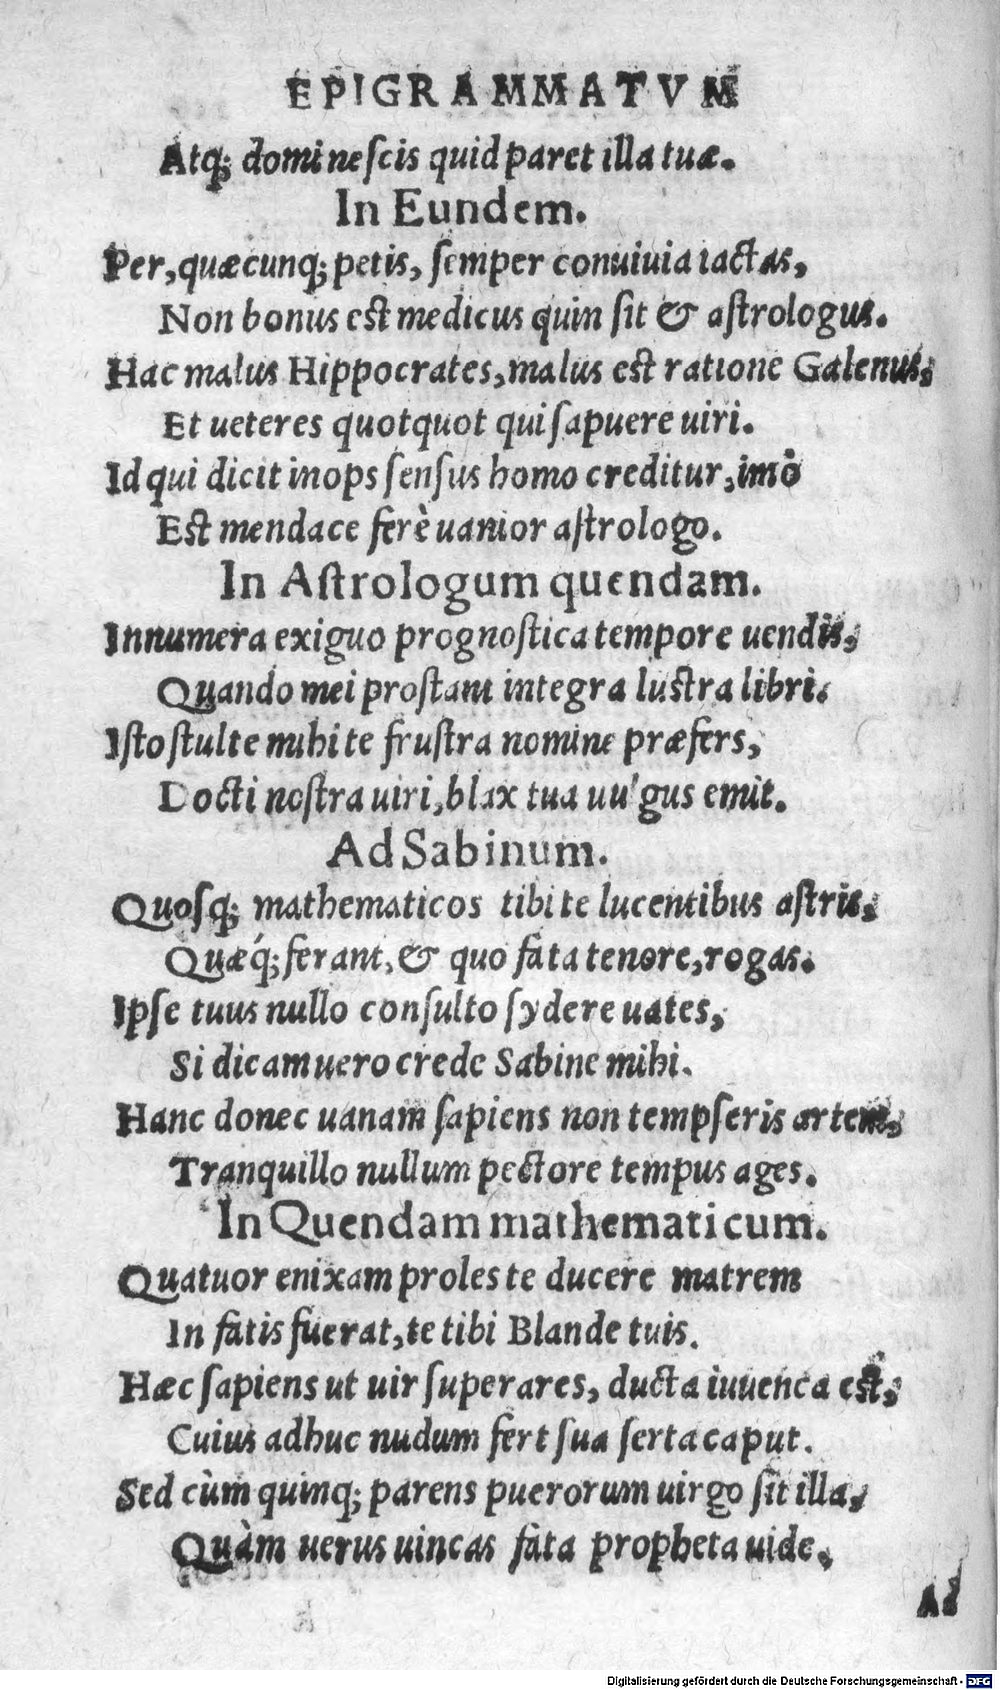 EPIGRAMMATVM
Atq; domi nescis quid paret illa tuæ.
In Eundem.
Per, quæcunq; petis, semper conuiuia iactas,
Non bonus est medicus quin sit & astrologus.
Hac malus Hippocrates, malus est ratione Galenus,
Et ueteres quotquot qui sapuere uiri.
Id qui dicit inops sensus homo creditur, imò
Est mendace ferè uanior astrologo.
In Astrologum quendam.
Innumera exiguo prognostica tempore uendis,
Quando mei prostant integra lustra libri.
Isto stulte mihi te frustra nomine præfers,
Docti nostra uiri, blax tua uulgus emit.
Ad Sabinum.
Quosq; mathematicos tibi te lucentibus astris,
Quæq́; ferant, & quo fata tenore, rogas.
Ipse tuus nullo consulto sydere uates,
Si dicam uero crede Sabine mihi.
Hanc donec uanam sapiens non tempseris artem,
Tranquillo nullum pectore tempus ages.
In Quendam mathematicum.
Quatuor enixam proles te ducere matrem
In fatis fuerat, te tibi Blande tuis.
Hæc sapiens ut uir superares, ducta iuuenca est,
Cuius adhuc nudum fert sua serta caput.
Sed cùm quinq; parens puerorum uirgo sit illa,
Quàm uerus uincas fata propheta uide.
Ad
Digitalisierung gefördert durch die Deutsche Forschungsgemeinschaft - DFG